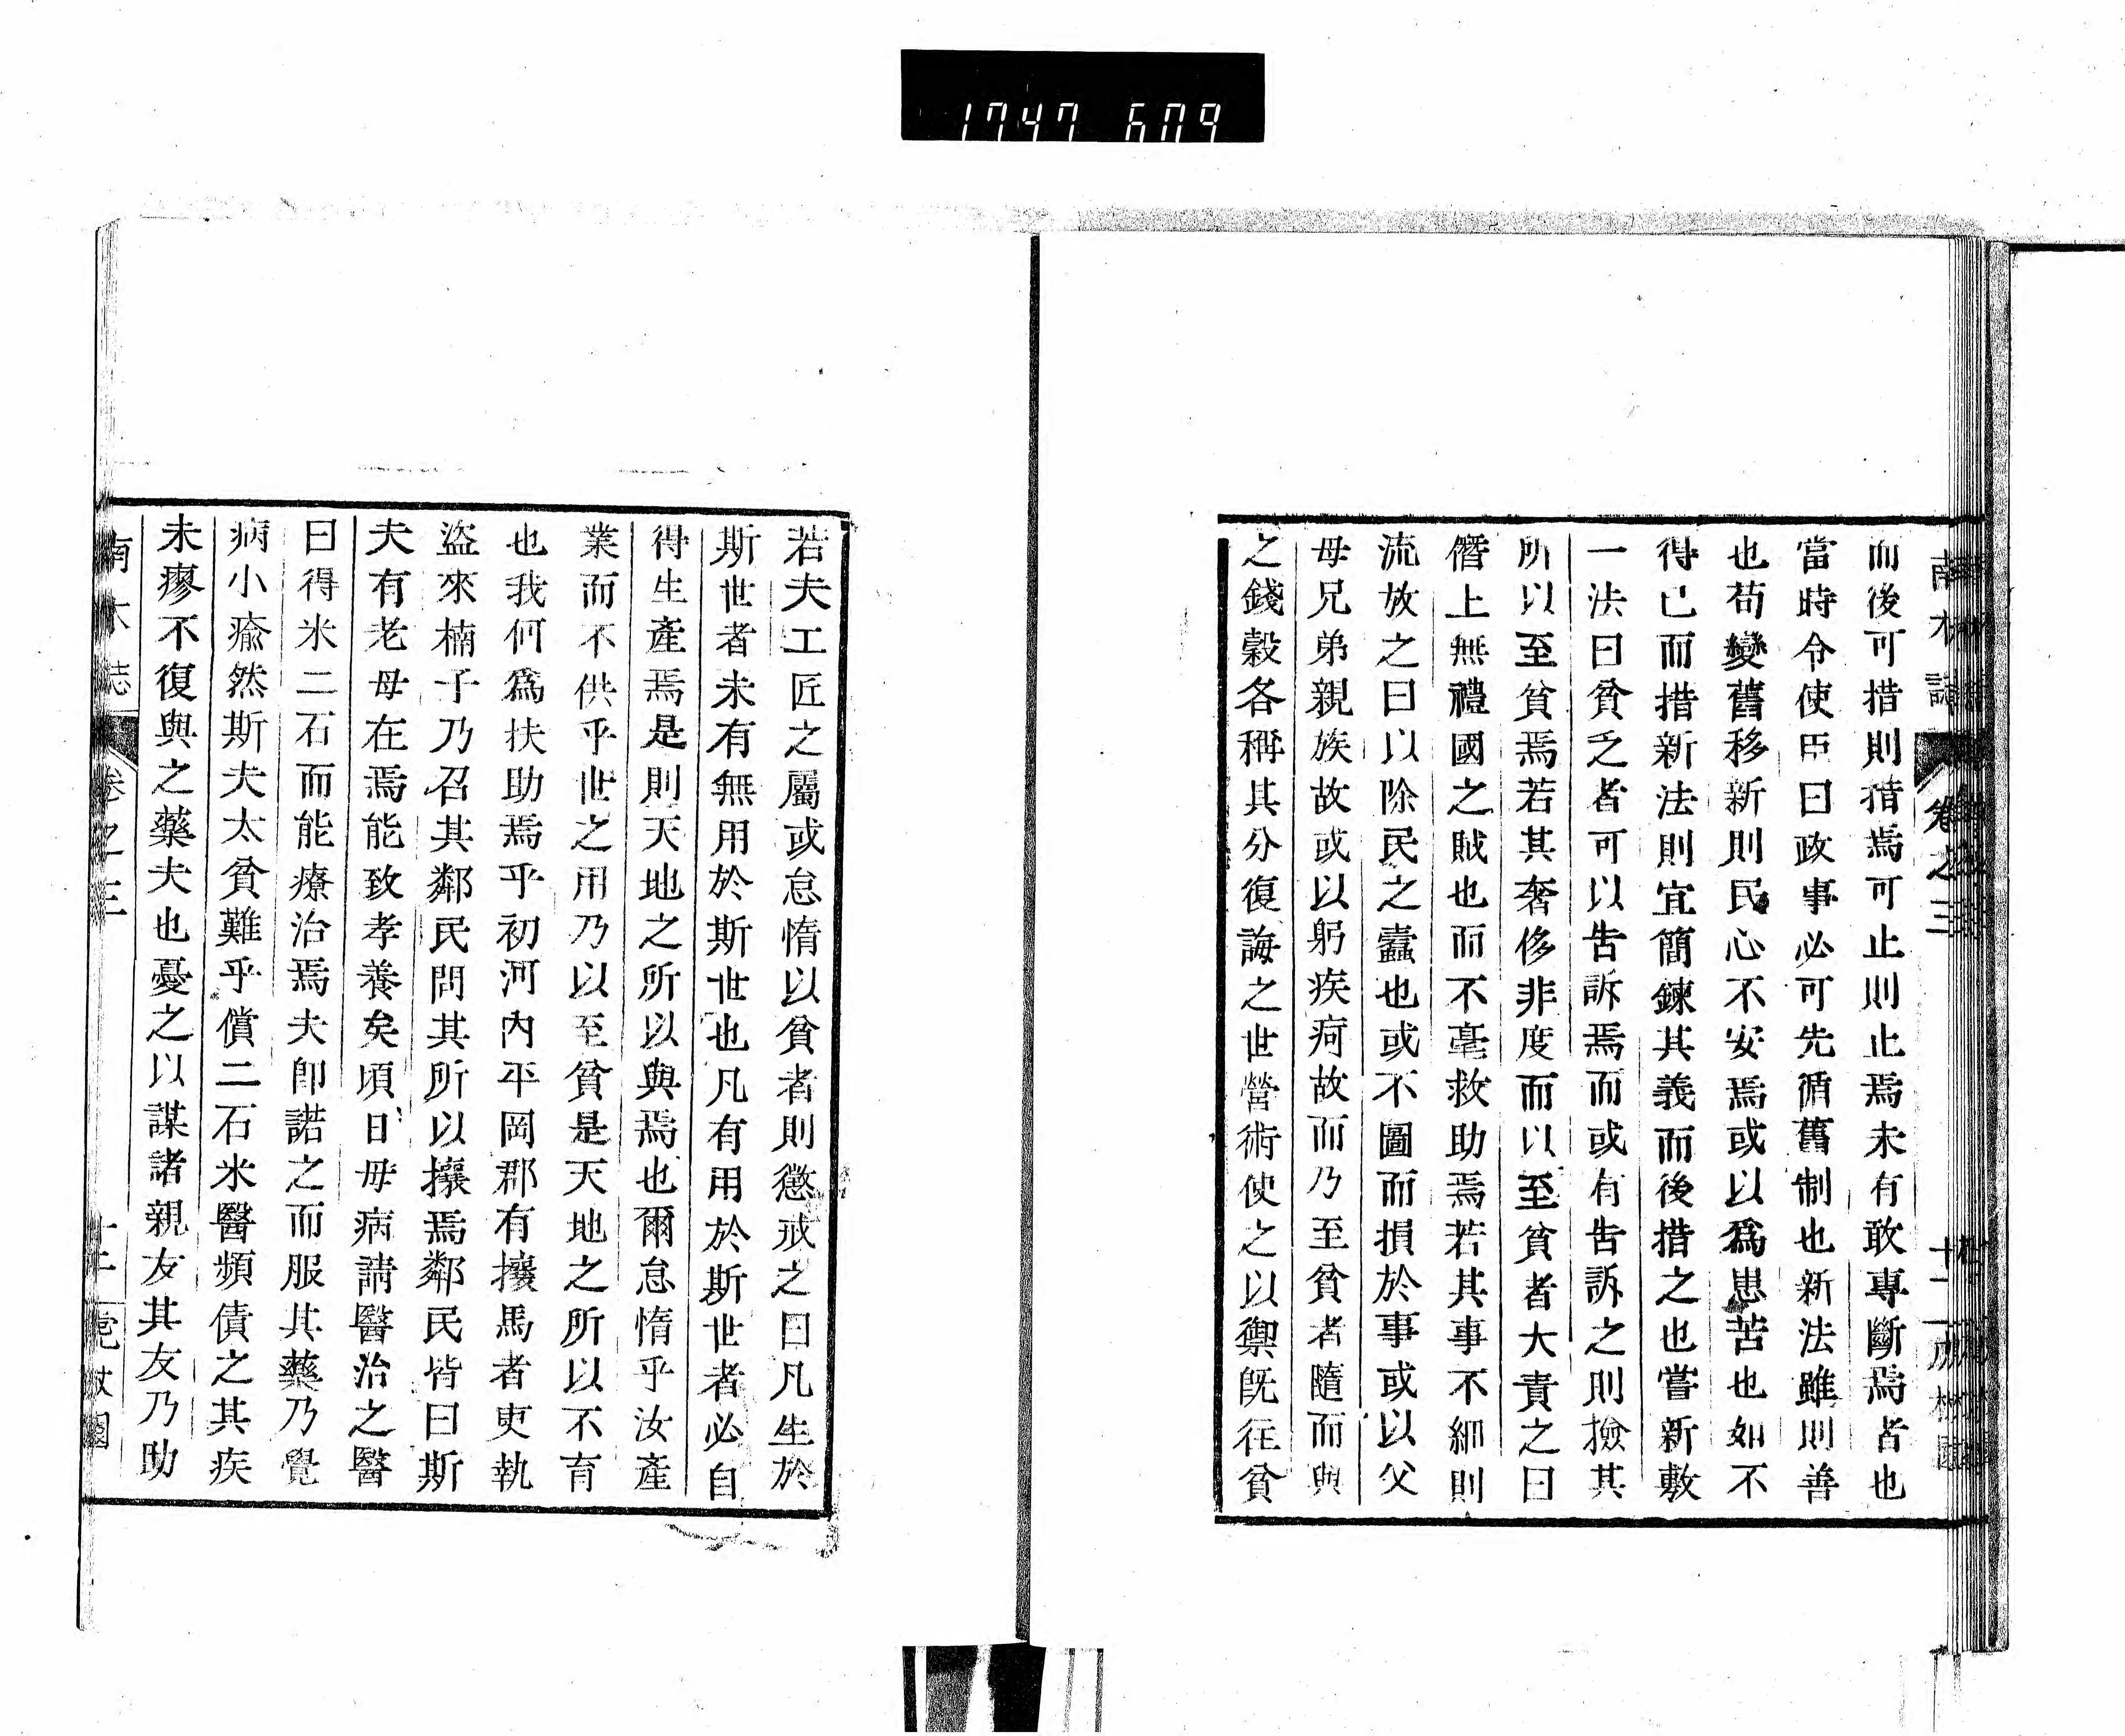 1747 609
南木誌 卷之三
而後可措則措焉可止則止焉未有敢專斷焉者也
當時令使臣曰政事必可先循舊制也新法雖則善
也苟變舊移新則民心不安焉或以爲患苦也如不
得已而措新法則宜簡鍊其義而後措之也嘗新敷
一法曰貧乏者可以告訴焉而或有告訴之則撿其
所以至貧焉若其奢侈非度而以至貧者大責之曰
僭上無禮國之賊也而不毫救助焉若其事不細則
流放之曰以除民之蠹也或不圖而損於事或以父
母兄弟親族故或以躬疾疴故而乃至貧者隨而與
之錢穀各稱其分復誨之世營術使之以禦旣往貧
若夫工匠之屬或怠惰以貧者則懲戒之曰凡生於
斯世者未有無用於斯世也凡有用於斯世者必自
得生產焉是則天地之所以與焉也爾怠惰乎汝產
業而不供乎世之用乃以至貧是天地之所以不育
也我何爲扶助焉乎初河內平岡郡有攘馬者吏執
盜來楠子乃召其鄰民問其所以攘焉鄰民皆曰斯
夫有老母在焉能致孝養矣頃日母病請醫治之醫
曰得米二石而能療治焉夫卽諾之而服其藥乃覺
病小瘉然斯夫太貧難乎償二石米醫頻債之其疾
未瘳不復與之藥夫也憂之以謀諸親友其友乃助
南木誌 卷之三